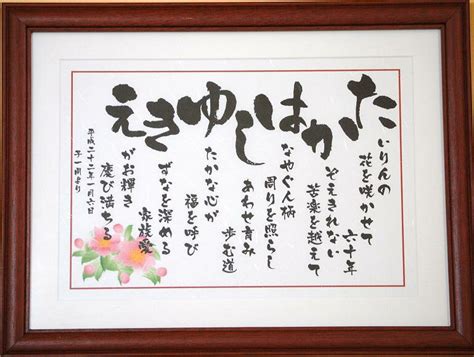 たかはしゆきえ
いりんの
花を咲かせて
六十年
ぞえきれない
苦楽を越えて
なやぐ人柄
周りを照らし
あわせ育み
歩む道
たかな心が
福を呼び
ずなを深める
家族愛
がお輝き
慶び満ちる
平成二十二年一月六日
子一同より